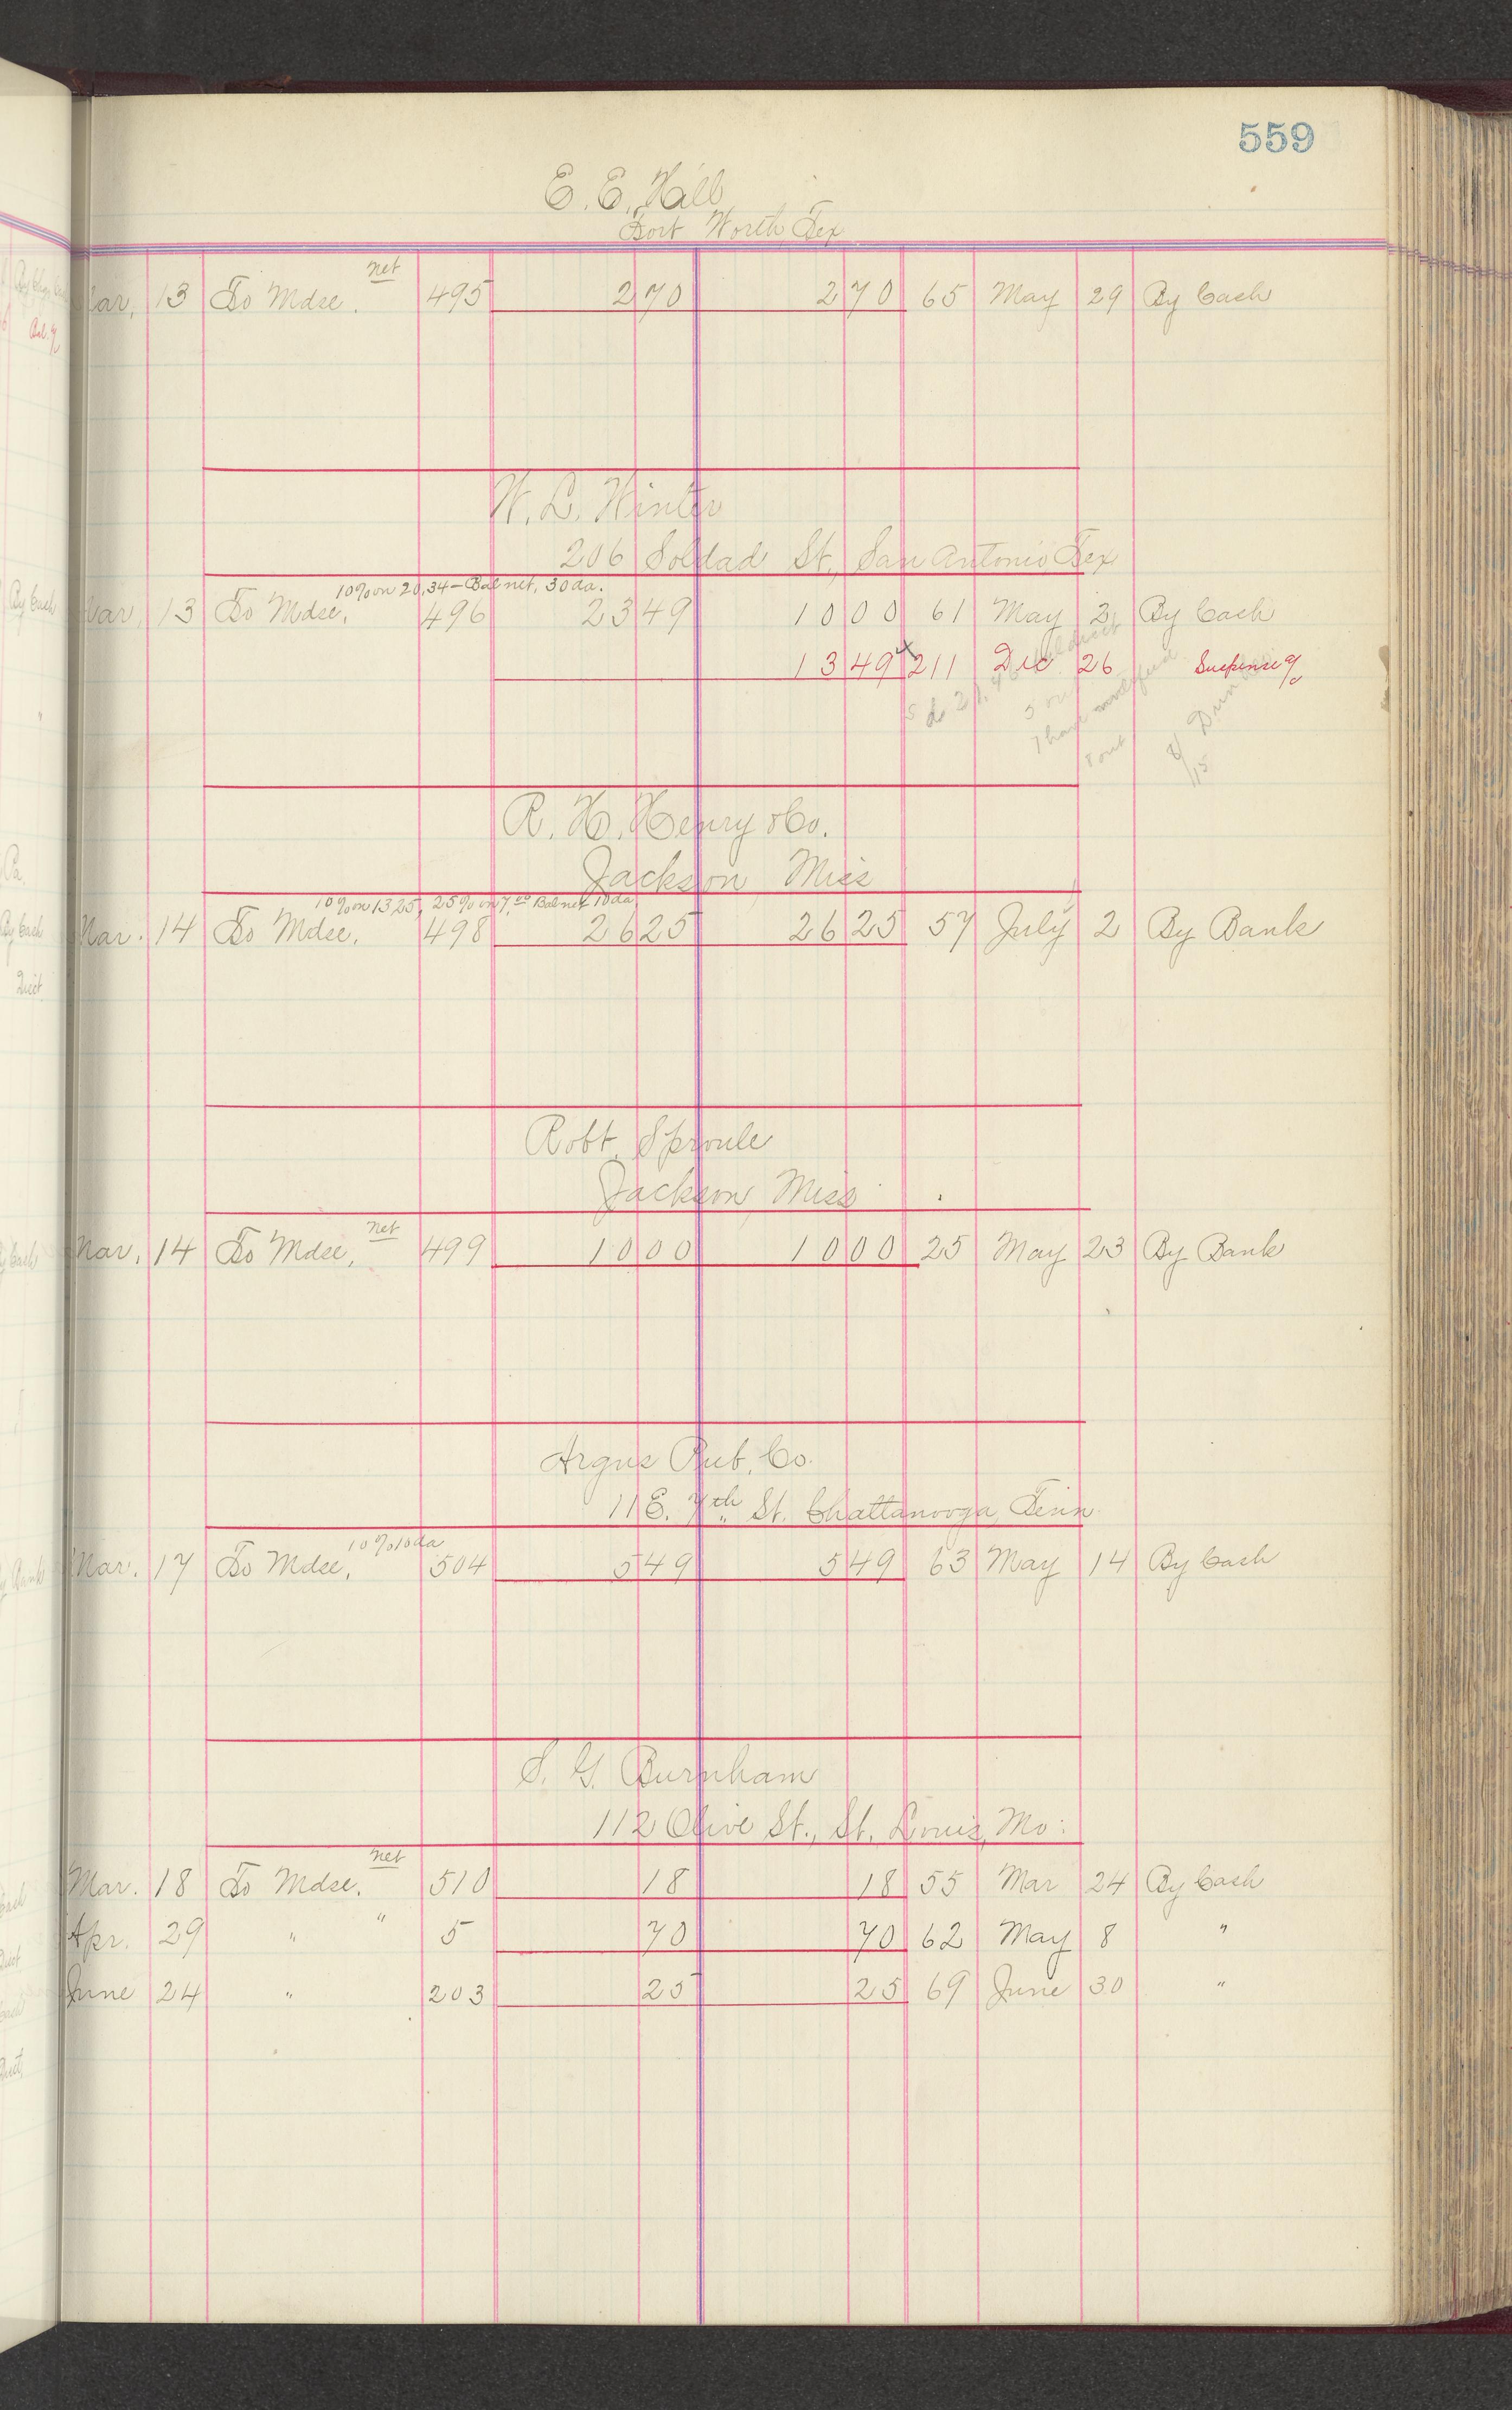 559
E. E. Hall
Fort Worth Tex
net
Mar, 13 To Mdse. 495 2 70 2 70 65 May 29 By Cash
W. L. Winter
206 Soldad St, San Antonio Tex
10% on 20,34 - Bal net, 30 da.
Mar, 13 To Mdse, 496 23 49 10 00 61 May 2 By Cash
13 49 x 211 Dec 26 Suspense a/c
R. H. Henry & Co.
Jackson Miss
10% on 13,25, 25% on 7.00 Bal net 10 da
Mar. 14 To Mdse, 498 26 25 26 25 57 July 2 By Bank
Robt. Sproule
Jackson, Miss
net
Mar, 14 To Mdse, 499 10 00 10 00 25 May 23 By Bank
Argus Pub, Co.
11 E. 7th St. Chattanooga, Tenn.
10% 10 da
Mar. 17 To Mdse, 504 5 49 5 49 63 May 14 By Cash
S. G. Burnham
112 Olive St., St. Louis, Mo:
net
Mar. 18 To Mdse. 510 18 18 55 Mar 24 By Cash
Apr. 29 " " 5 70 70 62 May 8 "
June 24 " 203 25 25 69 June 30 "